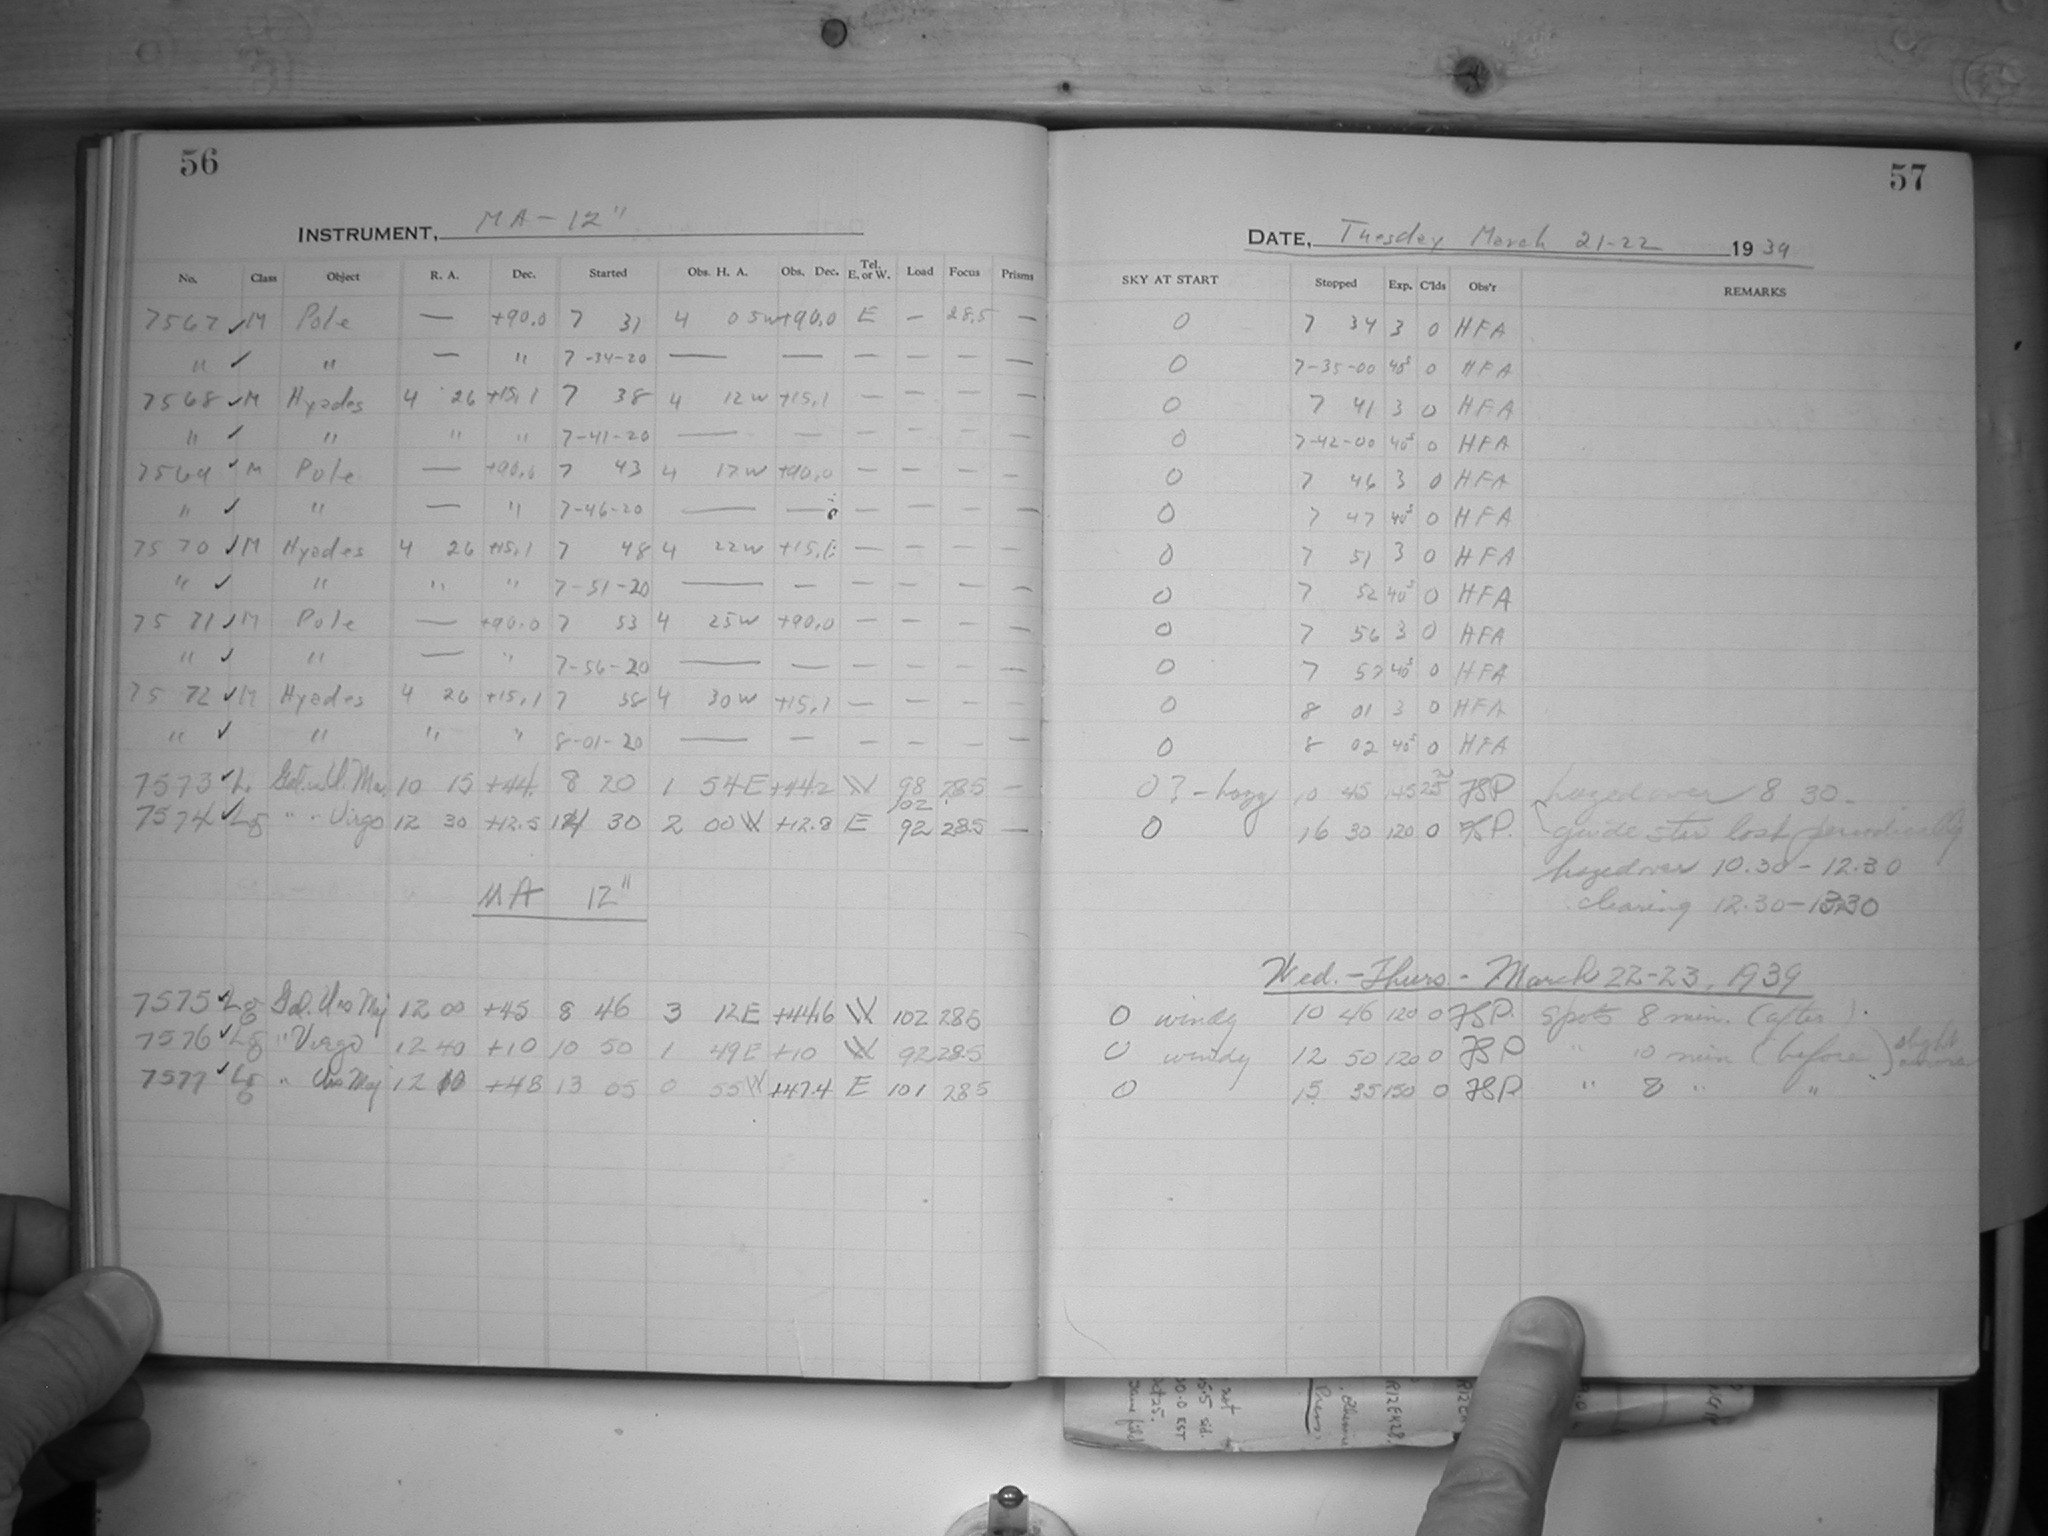 56
INSTRUMENT, MA - 12"
No. Class Object R. A. Dec. Started Obs. H. A. Obs. Dec. Tel. E. or W. Load Focus Prisms
7567 ✓ M Pole — +90.0 7 31 4 05W +90.0 E — 28.5 —
" ✓ " — " 7-34-20 — — — — — —
7568 ✓ M Hyades 4 26 +15.1 7 38 4 12W +15.1 — — — —
" ✓ " " " 7-41-20 — — — — — —
7569 ✓ M Pole — +90.0 7 43 4 17W +90.0 — — — —
" ✓ " — " 7-46-20 — — — — — —
7570 ✓ M Hyades 4 26 +15.1 7 48 4 22W +15.1 — — — —
" ✓ " " " 7-51-20 — — — — — —
7571 ✓ M Pole — +90.0 7 53 4 25W +90.0 — — — —
" ✓ " — " 7-56-20 — — — — — —
7572 ✓ M Hyades 4 26 +15.1 7 58 4 30W +15.1 — — — —
" ✓ " " " 8-01-20 — — — — — —
7573 ✓ L Gal. in U. Ma. 10 15 +44. 8 20 1 54E +44.2 W 98 28.5 —
102
7574 ✓ Lg " " Virgo 12 30 +12.5 14 30 2 00W +12.8 E 92 28.5 —
MA 12"
7575 ✓ Lg Gal. Urs Maj 12 00 +45 8 46 3 12E +44.6 W 102 28.5
7576 ✓ Lg " Virgo 12 40 +10 10 50 1 49E +10 W 92 28.5
7577 ✓ Lg " Urs Maj 12 10 +48 13 05 0 55W +47.4 E 101 28.5
57
DATE, Tuesday March 21-22 1939
SKY AT START Stopped Exp. C'lds Obs'r REMARKS
0 7 34 3 0 HFA
0 7-35-00 40s 0 HFA
0 7 41 3 0 HFA
0 7-42-00 40s 0 HFA
0 7 46 3 0 HFA
0 7 47 40s 0 HFA
0 7 51 3 0 HFA
0 7 52 40s 0 HFA
0 7 56 3 0 HFA
0 7 57 40s 0 HFA
0 8 01 3 0 HFA
0 8 02 40s 0 HFA
0? - hazy 10 45 145 25 JSP hazed over 8 30 -
0 16 30 120 0 JSP. guide star lost periodically
hazed over 10.30 - 12.30
clearing 12.30 - 13.30
Wed. - Thurs - March 22-23, 1939
0 windy 10 46 120 0 JSP. spots 8 min. (after).
0 windy 12 50 120 0 JSP " 10 min (before) slight aurora
0 15 35 150 0 JSP. " 8 " "